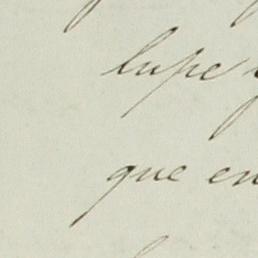 lupe
que en